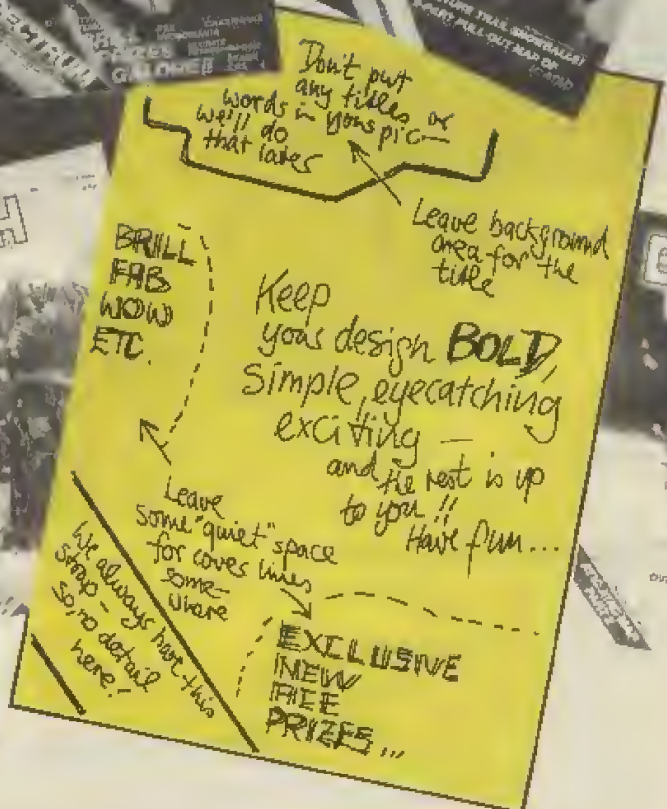 GALORE!!
Don't put
any titles or
words in your pic—
we'll do
that later
Leave background
area for the
title
BRILL
FAB
WOW
ETC.
Keep
your design BOLD,
simple, eyecatching
exciting —
and the rest is up
to you!!
Have fun...
Leave
some "quiet" space
for cover lines
some-
where
We always have this
strap –
so, no detail
here!
EXCLUSIVE
NEW
FREE
PRIZES...